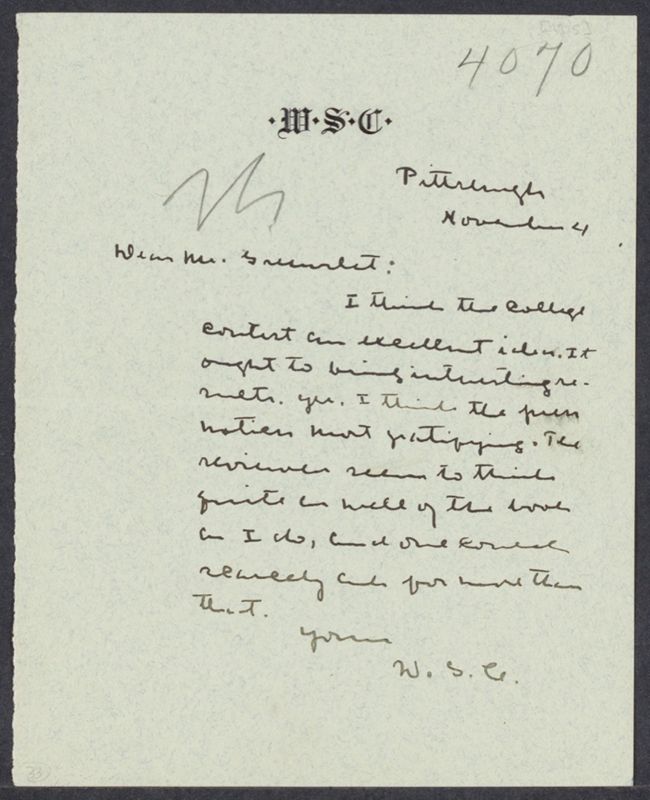 4070
·W·S·C·
Pittsburgh
November 4
Dear Mr. Greenslet:
I think the college
contest an excellent idea. It
ought to bring interesting re-
sults. Yes, I think the press
notices most gratifying. The
reviewers seem to think
quite as well of the book
as I do, and one could
scarcely ask for more than
that.
Yours
W. S. C.
33